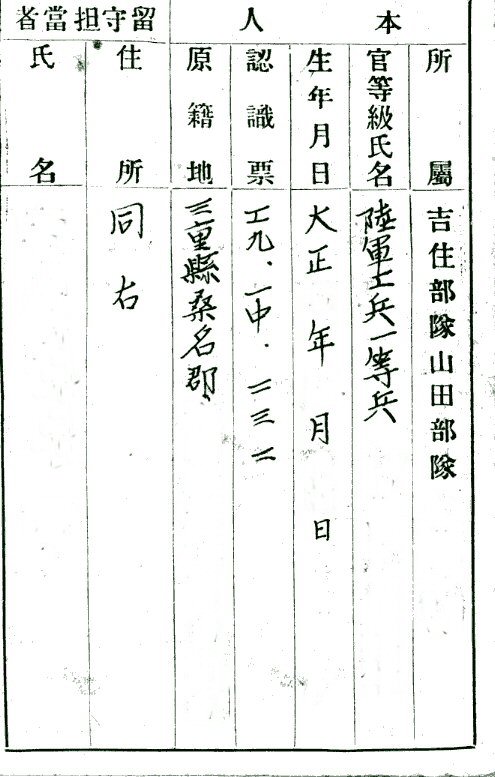 本人
所屬
吉住部隊山田部隊
官等級氏名
陸軍工兵一等兵
生年月日
大正 年 月 日
認識票
工九.一中.二三二
原籍地
三重縣桑名郡
留守担當者
住所
同右
氏名